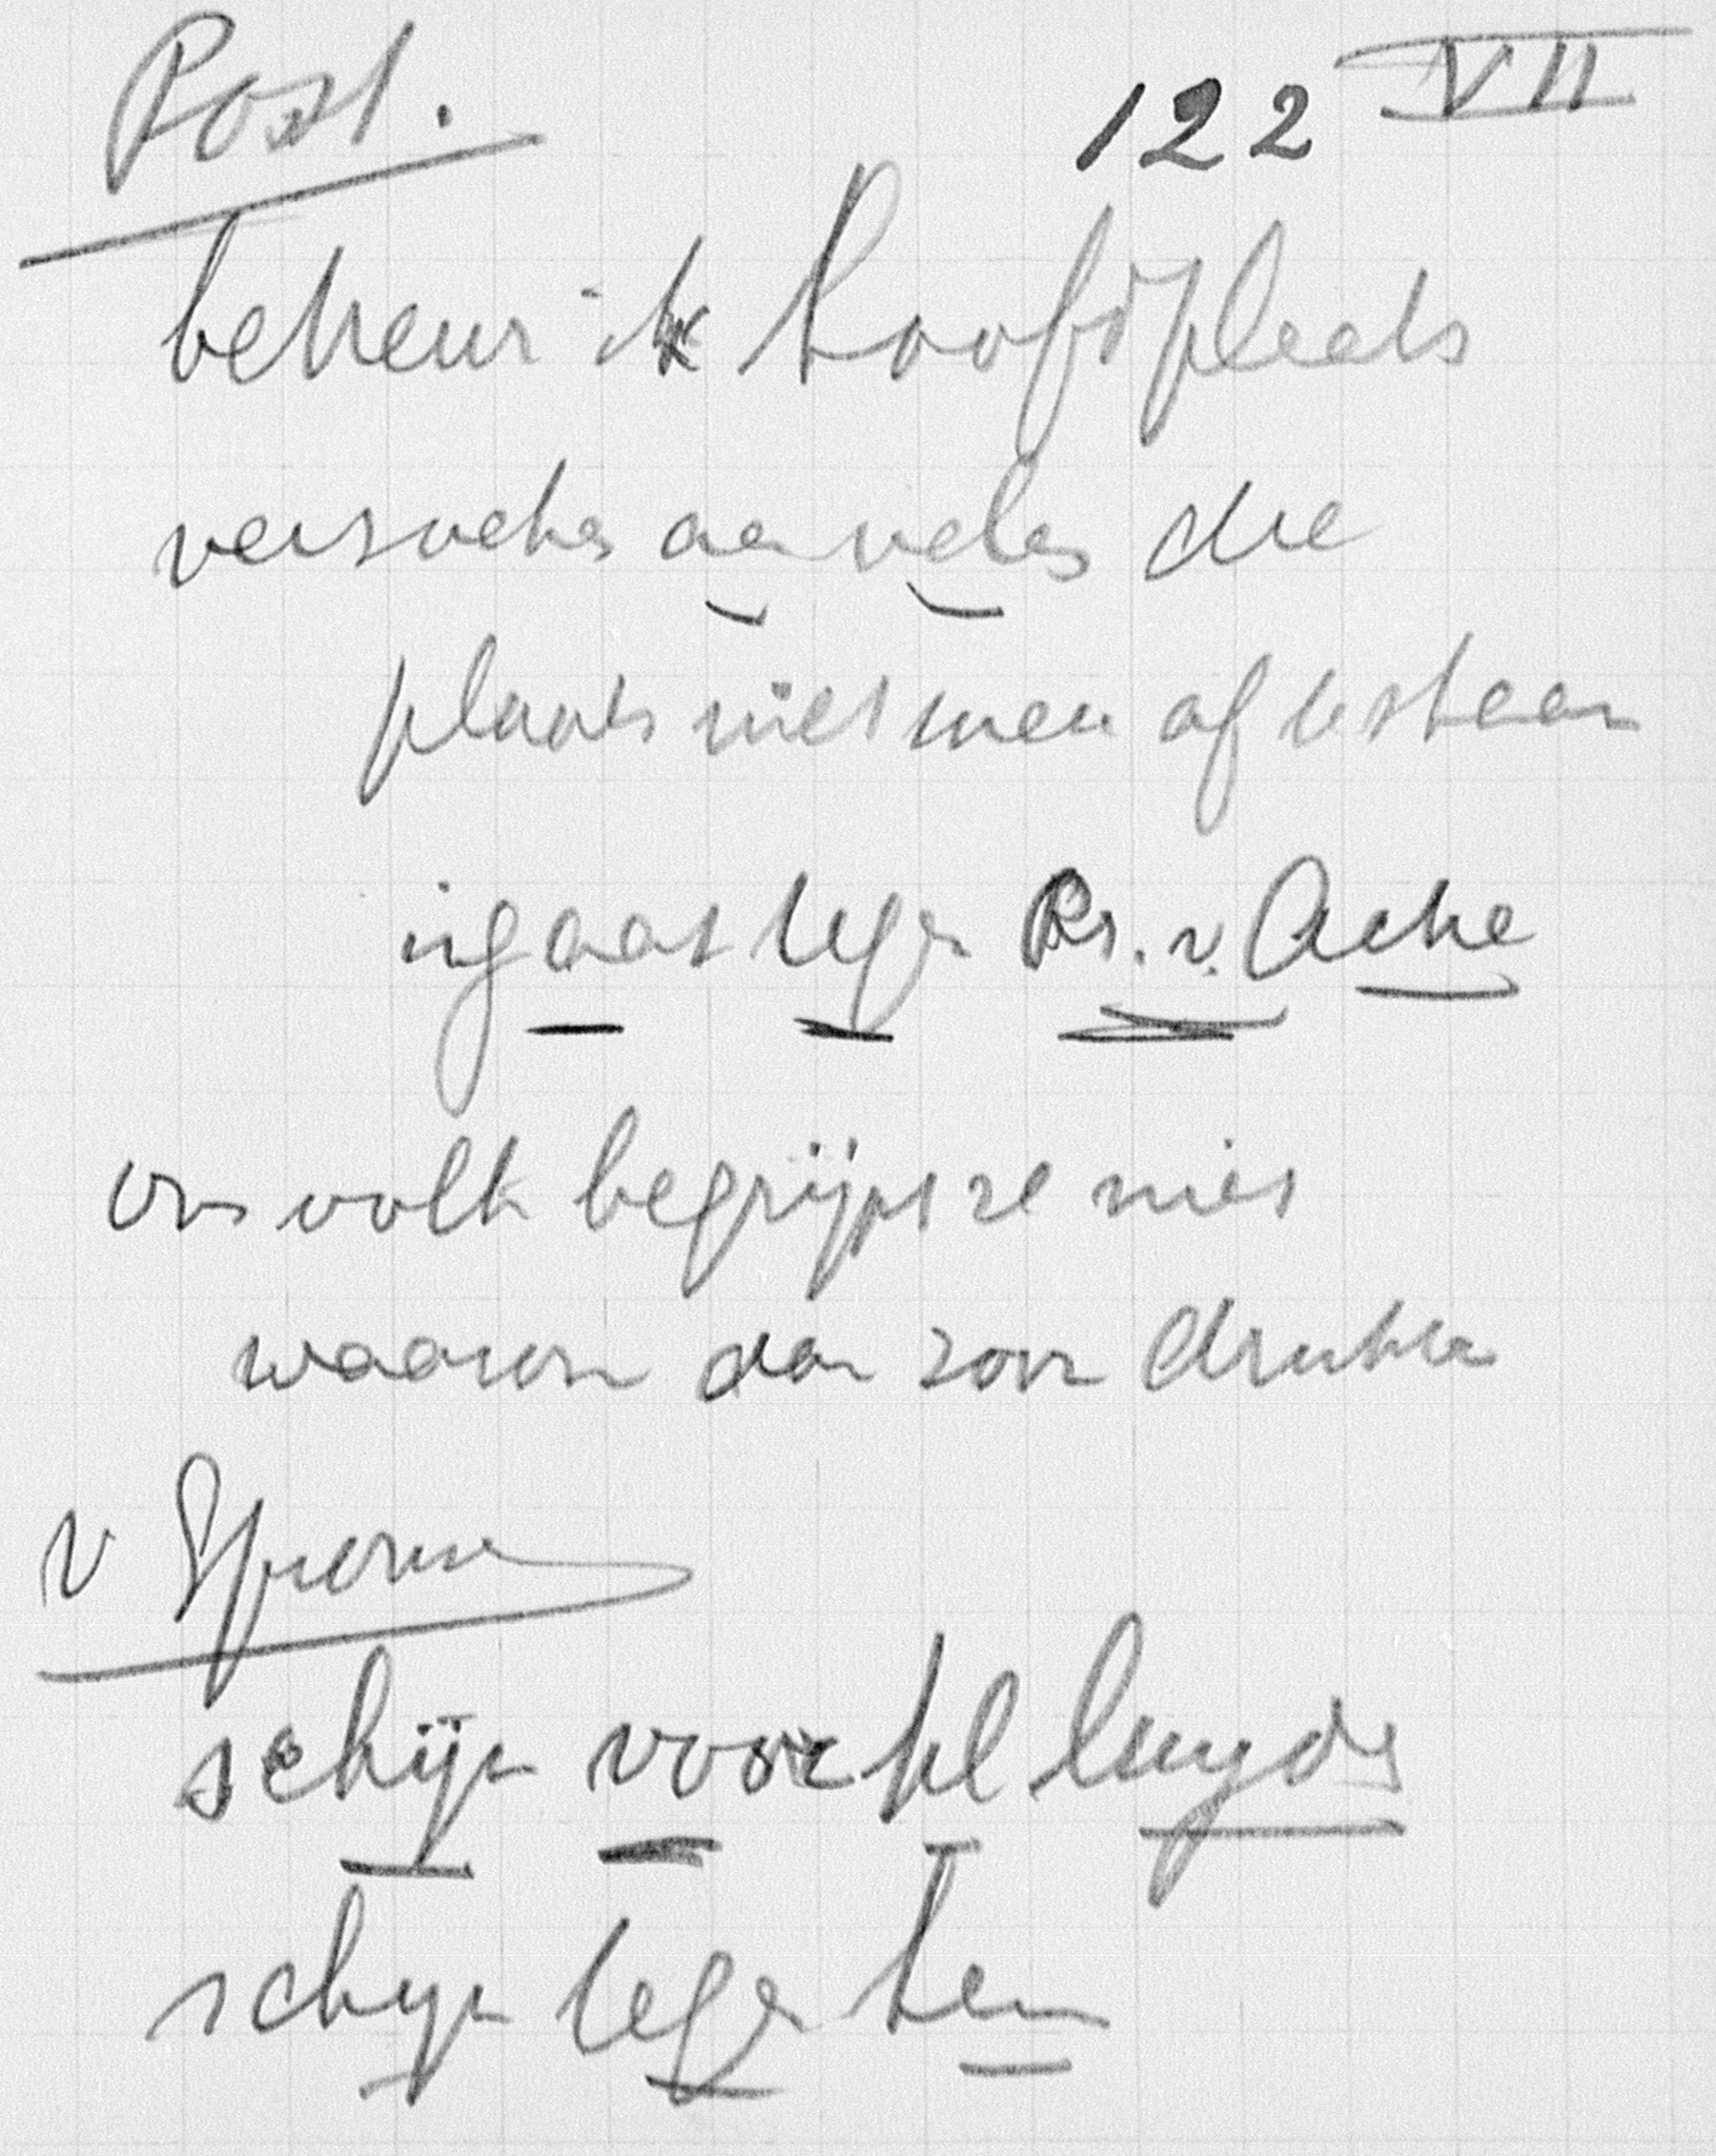 Post.
122 VII
betreur ik hoofdplaats
versoeke aanvelen die
plaats niet men af te staan
ingaat tegen Pr. v. Ache
ons volk begrijpt ze niet
waarom dan zoon drukke
v Spierne
schijn voor pl luyde
schijn tegen hem